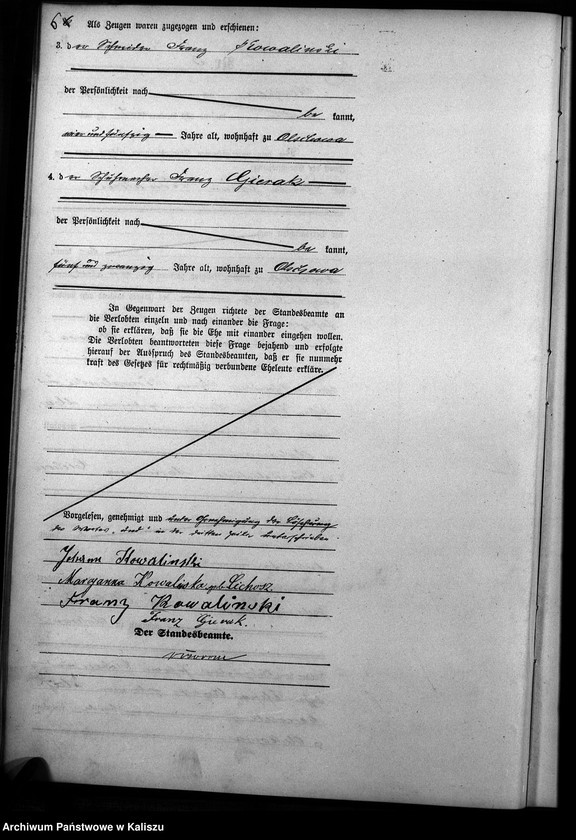 Als Zeugen waren zugezogen und erschienen:
3. der Schneider Franz Kowalinski
der Persönlichkeit nach
be kannt,
vier und fünfzig Jahre alt, wohnhaft zu Olschowa
4. der Schuhmacher Franz Gierak
der Persönlichkeit nach
be kannt,
fünf und zwanzig Jahre alt, wohnhaft zu Olschowa
In Gegenwart der Zeugen richtete der Standesbeamte an
die Verlobten einzeln und nach einander die Frage:
ob sie erklären, daß sie die Ehe mit einander eingehen wollen.
Die Verlobten beantworteten diese Frage bejahend und erfolgte
hierauf der Ausspruch des Standesbeamten, daß er sie nunmehr
kraft des Gesetzes für rechtmäßig verbundene Eheleute erkläre.
Vorgelesen, genehmigt und unter Genehmigung der Löschung
des Wortes "und" in der dritten Zeile unterschrieben.
Johann Kowalinski
Maryanna Kowaliska geb. Lichosz
Franz Kowalinski
Franz Gierak.
Der Standesbeamte.
Archiwum Państwowe w Kaliszu